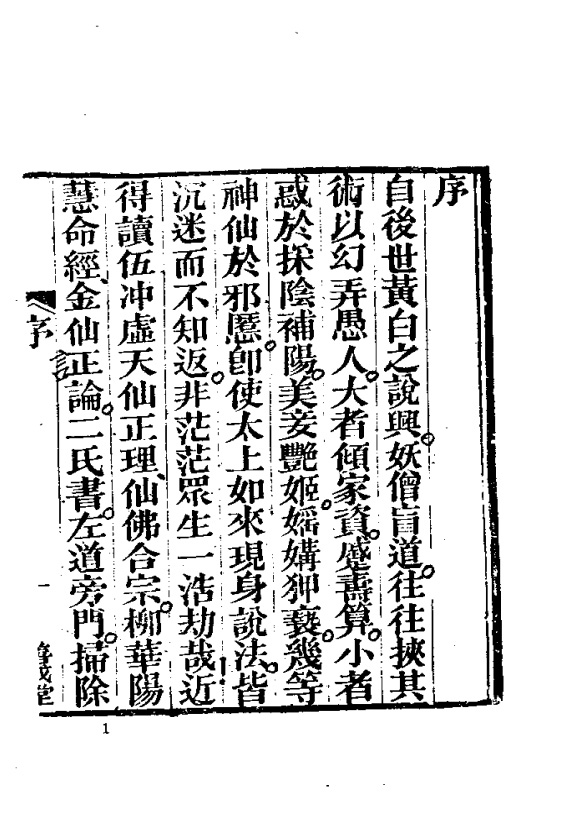 序
自後世黃白之說興。妖僧盲道。往往挾其
術以幻弄愚人。大者傾家資。蹙壽算。小者
惑於採陰補陽。美妾艷姬。婬媾狎褻。幾等
神仙於邪慝。卽使太上如來現身說法。皆
沉迷而不知返。非茫茫眾生一浩劫哉近
得讀伍冲虛天仙正理、仙佛合宗。柳華陽
慧命經、金仙正論。二氏書。左道旁門。掃除
序
一
1